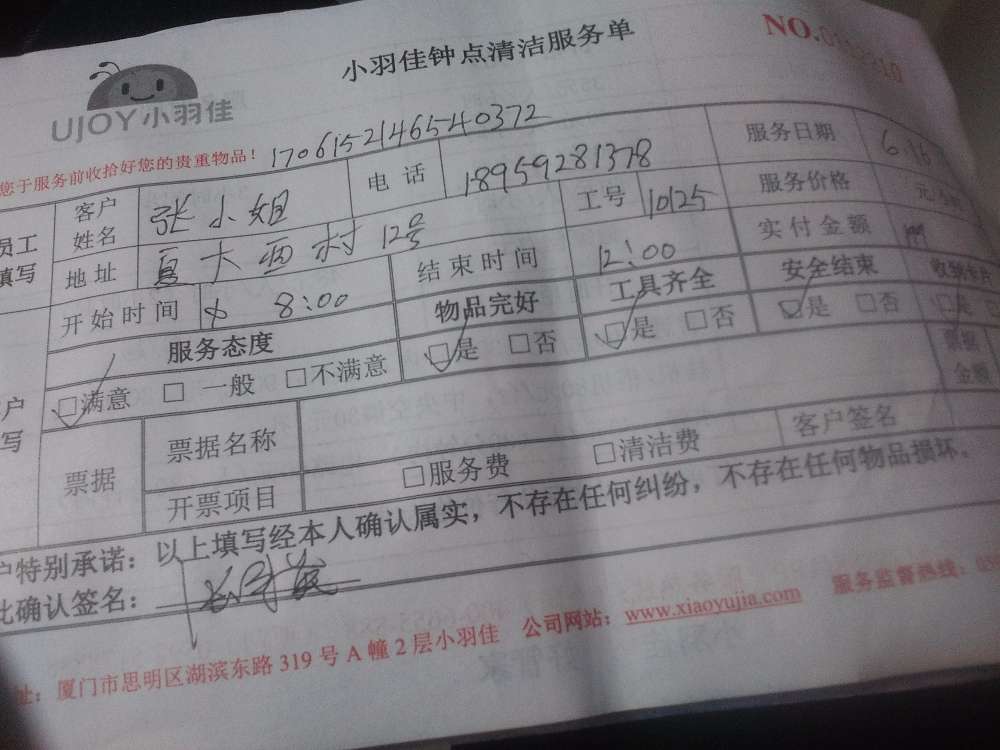 小羽佳钟点清洁服务单
NO.
UJOY小羽佳
您于服务前收拾好您的贵重物品！ 170615214654 0372
员工填写 客户姓名 张小姐 电话 18959281378 服务日期 6.16
地址 厦大西村12号 工号 10125 服务价格 元/小时
开始时间 8:00 结束时间 12:00 实付金额
服务态度 物品完好 工具齐全 安全结束
□满意 □一般 □不满意 □是 □否 □是 □否 □是 □否 □是
票据 票据名称 票据金额
开票项目 □服务费 □清洁费 客户签名
户特别承诺：以上填写经本人确认属实，不存在任何纠纷，不存在任何物品损坏。
此确认签名：
址：厦门市思明区湖滨东路319号A幢2层小羽佳 公司网站：www.xiaoyujia.com 服务监督热线：